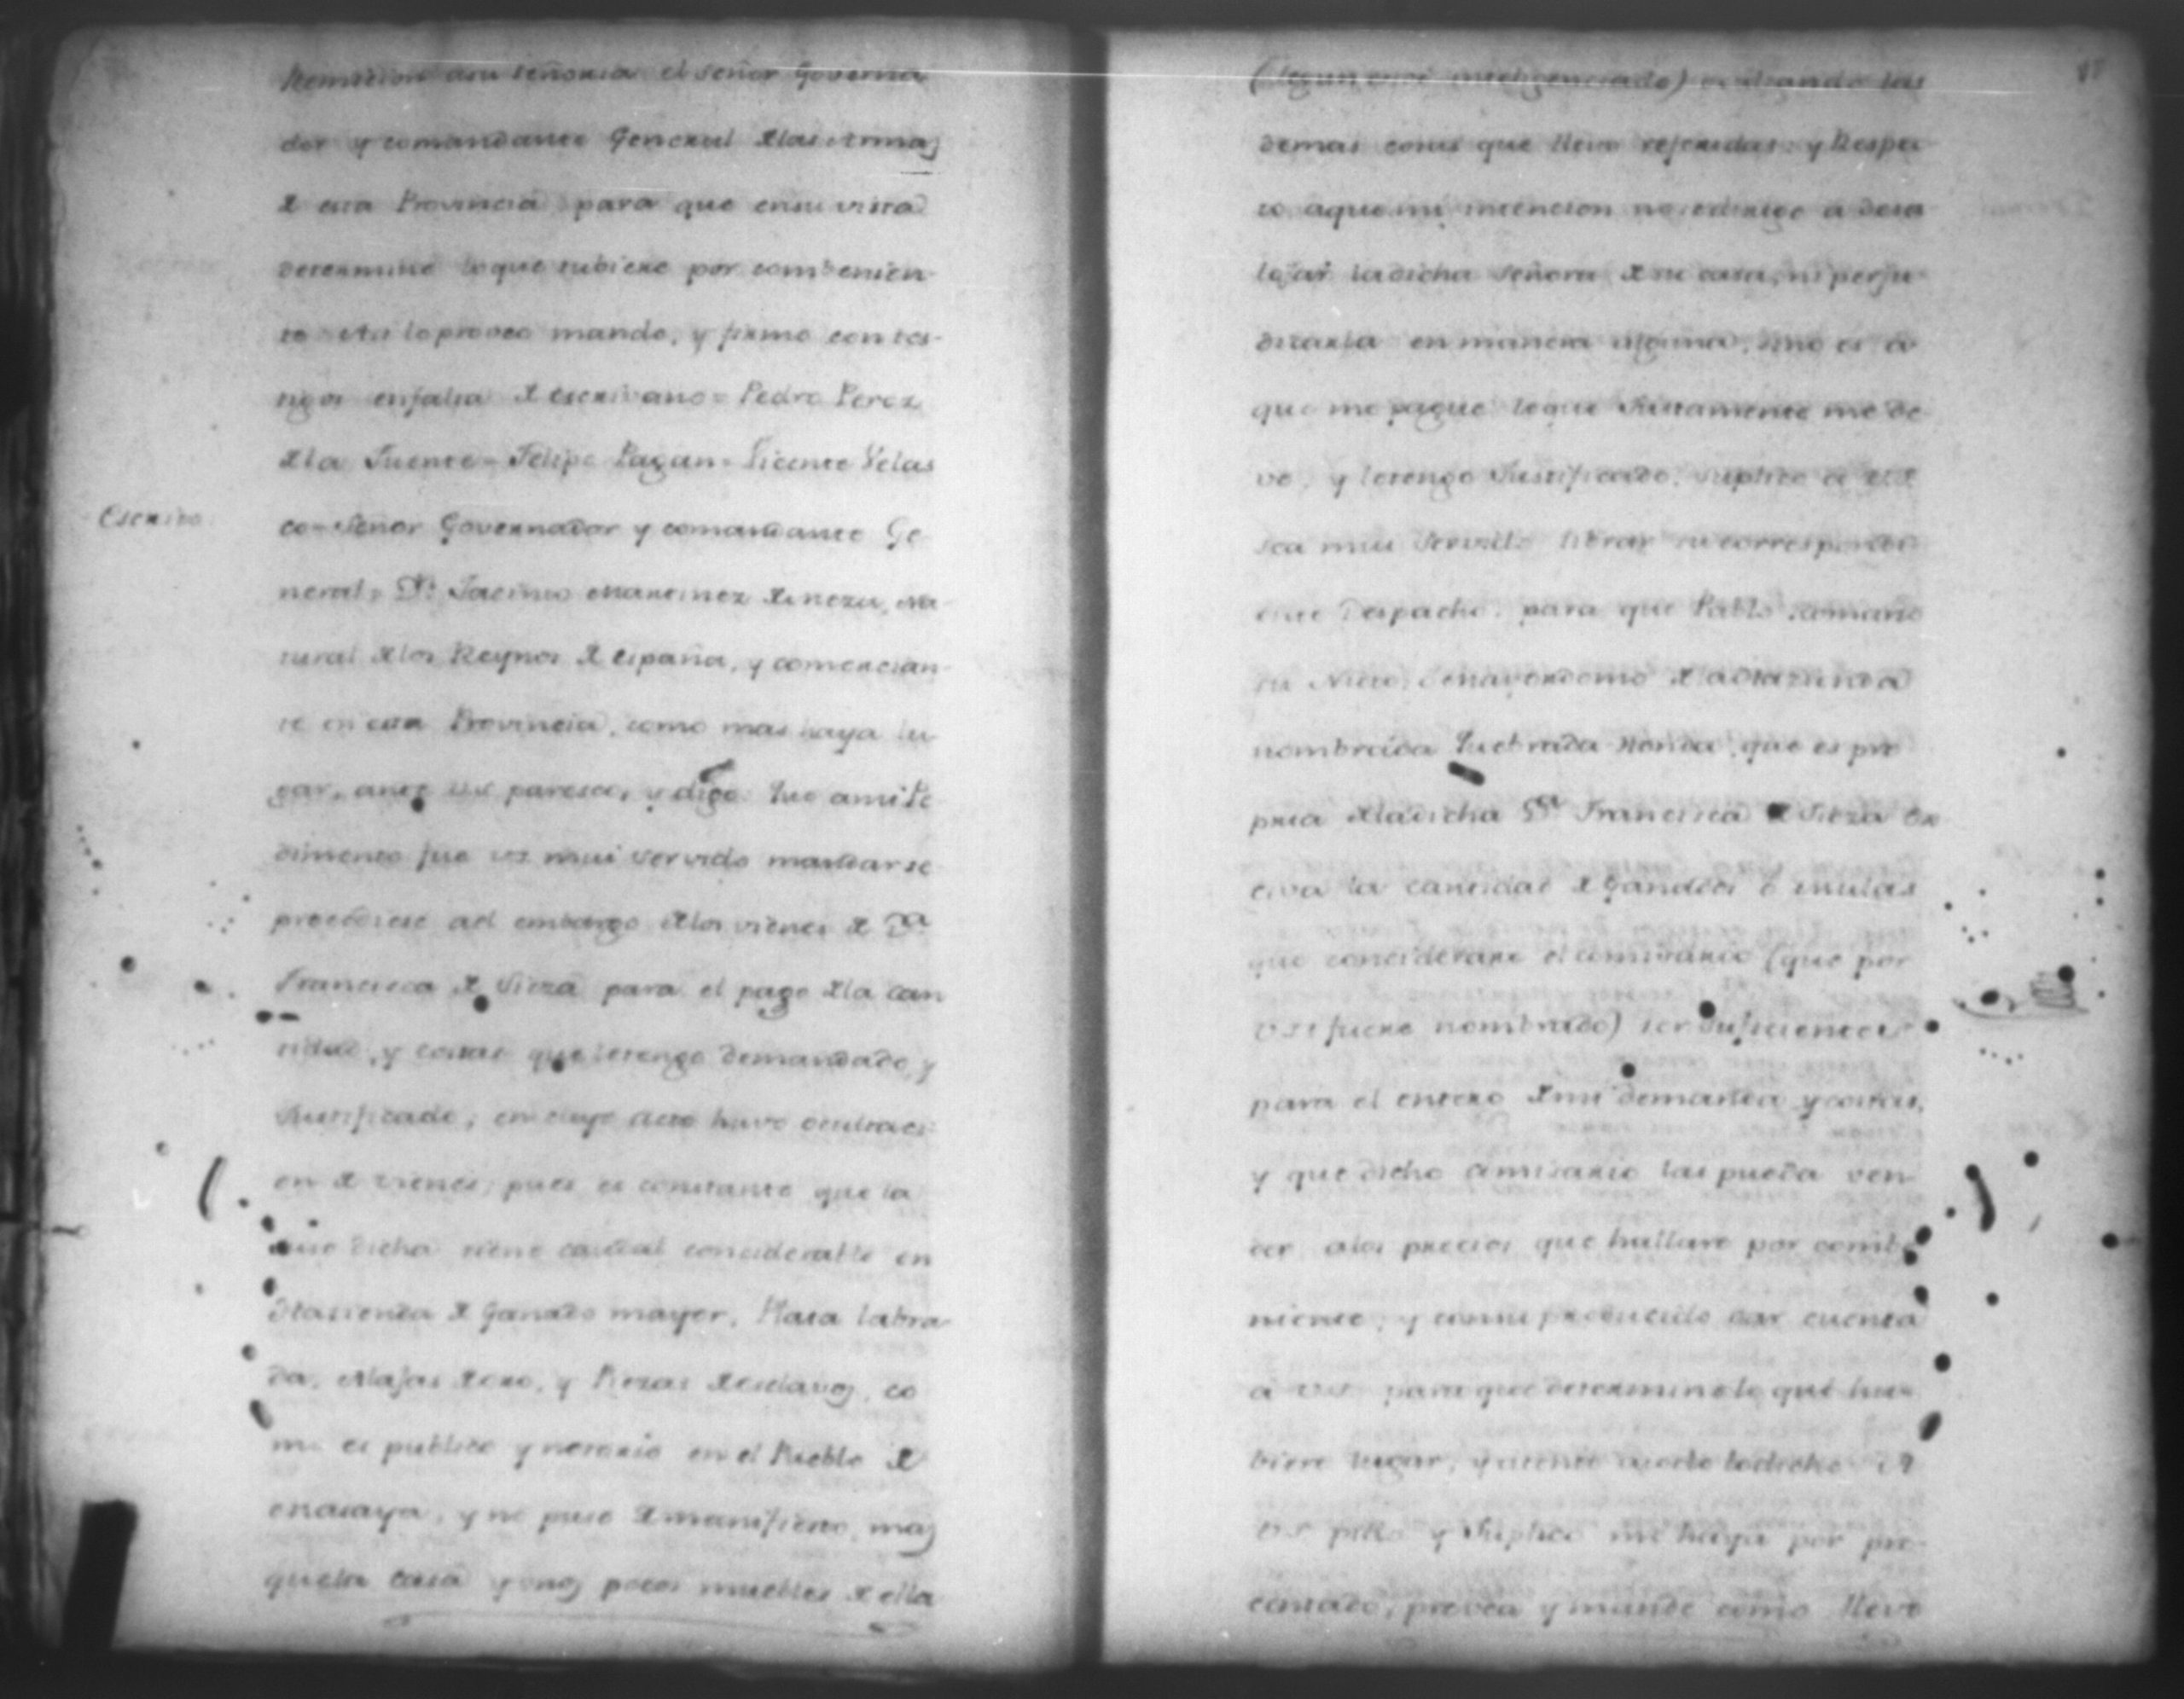 Remicion asu señoria el señor Governa
dor y comandante General dlas Armas
d esta Provincia para que ensu vista
determine loque tubiere por combenien
te Asi loproveo mando, y firmo con tes-
tigos enfalta d escrivano = Pedro Perez
dla Fuente = Felipe Pagan = Vicente Velas
Escrito
co = Señor Governador y comandante Ge
neral = Dn Jacinto Martinez d, Na
tural dlos Reynos d españa, y comercian
te en esta Provincia, como mas haya lu
gar, ante us paresco, y digo: Que ami Pe
dimento fue us mui servido mandar se
procediese ael embargo dlos vienes d Da
Francisca d Sieza para el pago dla can
tidad, y costas que letengo demandado, y
Justificado; en cuyo Acto huvo ocultaci
on d vienes, pues es constante que la
suso dicha tiene caudal considerable en
Hasienda d Ganado mayor, Plata labra
da, Alajas doro, y Piezas desclavos, co
mo es publico y notorio en el Pueblo d
Masaya, y no puso d manifiesto, mas
quela casa y unos pocos muebles d ella
(segun estoi inteligenciado) ocultando las
demas cosas que llevo referidas: y Respec
to aque mi intencion no edirige a desa
lojar ladicha señora d su casa, ni perju
dicarla en manera alguna, sino es a
que me pague loque Justamente me de
ve, y letengo Justificado; suplico a us
sea mui servido librar su correspondi
ente Despacho para que Pablo Romano
su Nieto, Mayordomo d la Hazienda
nombrada Quebrada honda, que es pro
pria dladicha Da Francisca d Sieza Ex
civa la cantidad d Ganados o mulas
que considerare el comisario (que por
us fuere nombrado) ser suficientes
para el entero d mi demanda y costas,
y que dicho comisario las pueda ven
der alos precios que hallare por combe
niente, y consu producido dar cuenta
a us para que determine lo que hu
biere lugar, y atento atodo lodicho A
us pido y suplico me haya por pre
centado, provea y mande como llevo